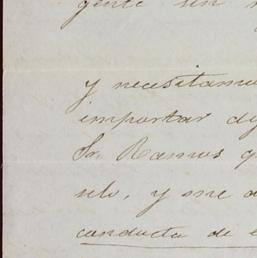 gente sin
y necesitamos
importar
Sr. Ramos q
selo, y me
conducta de